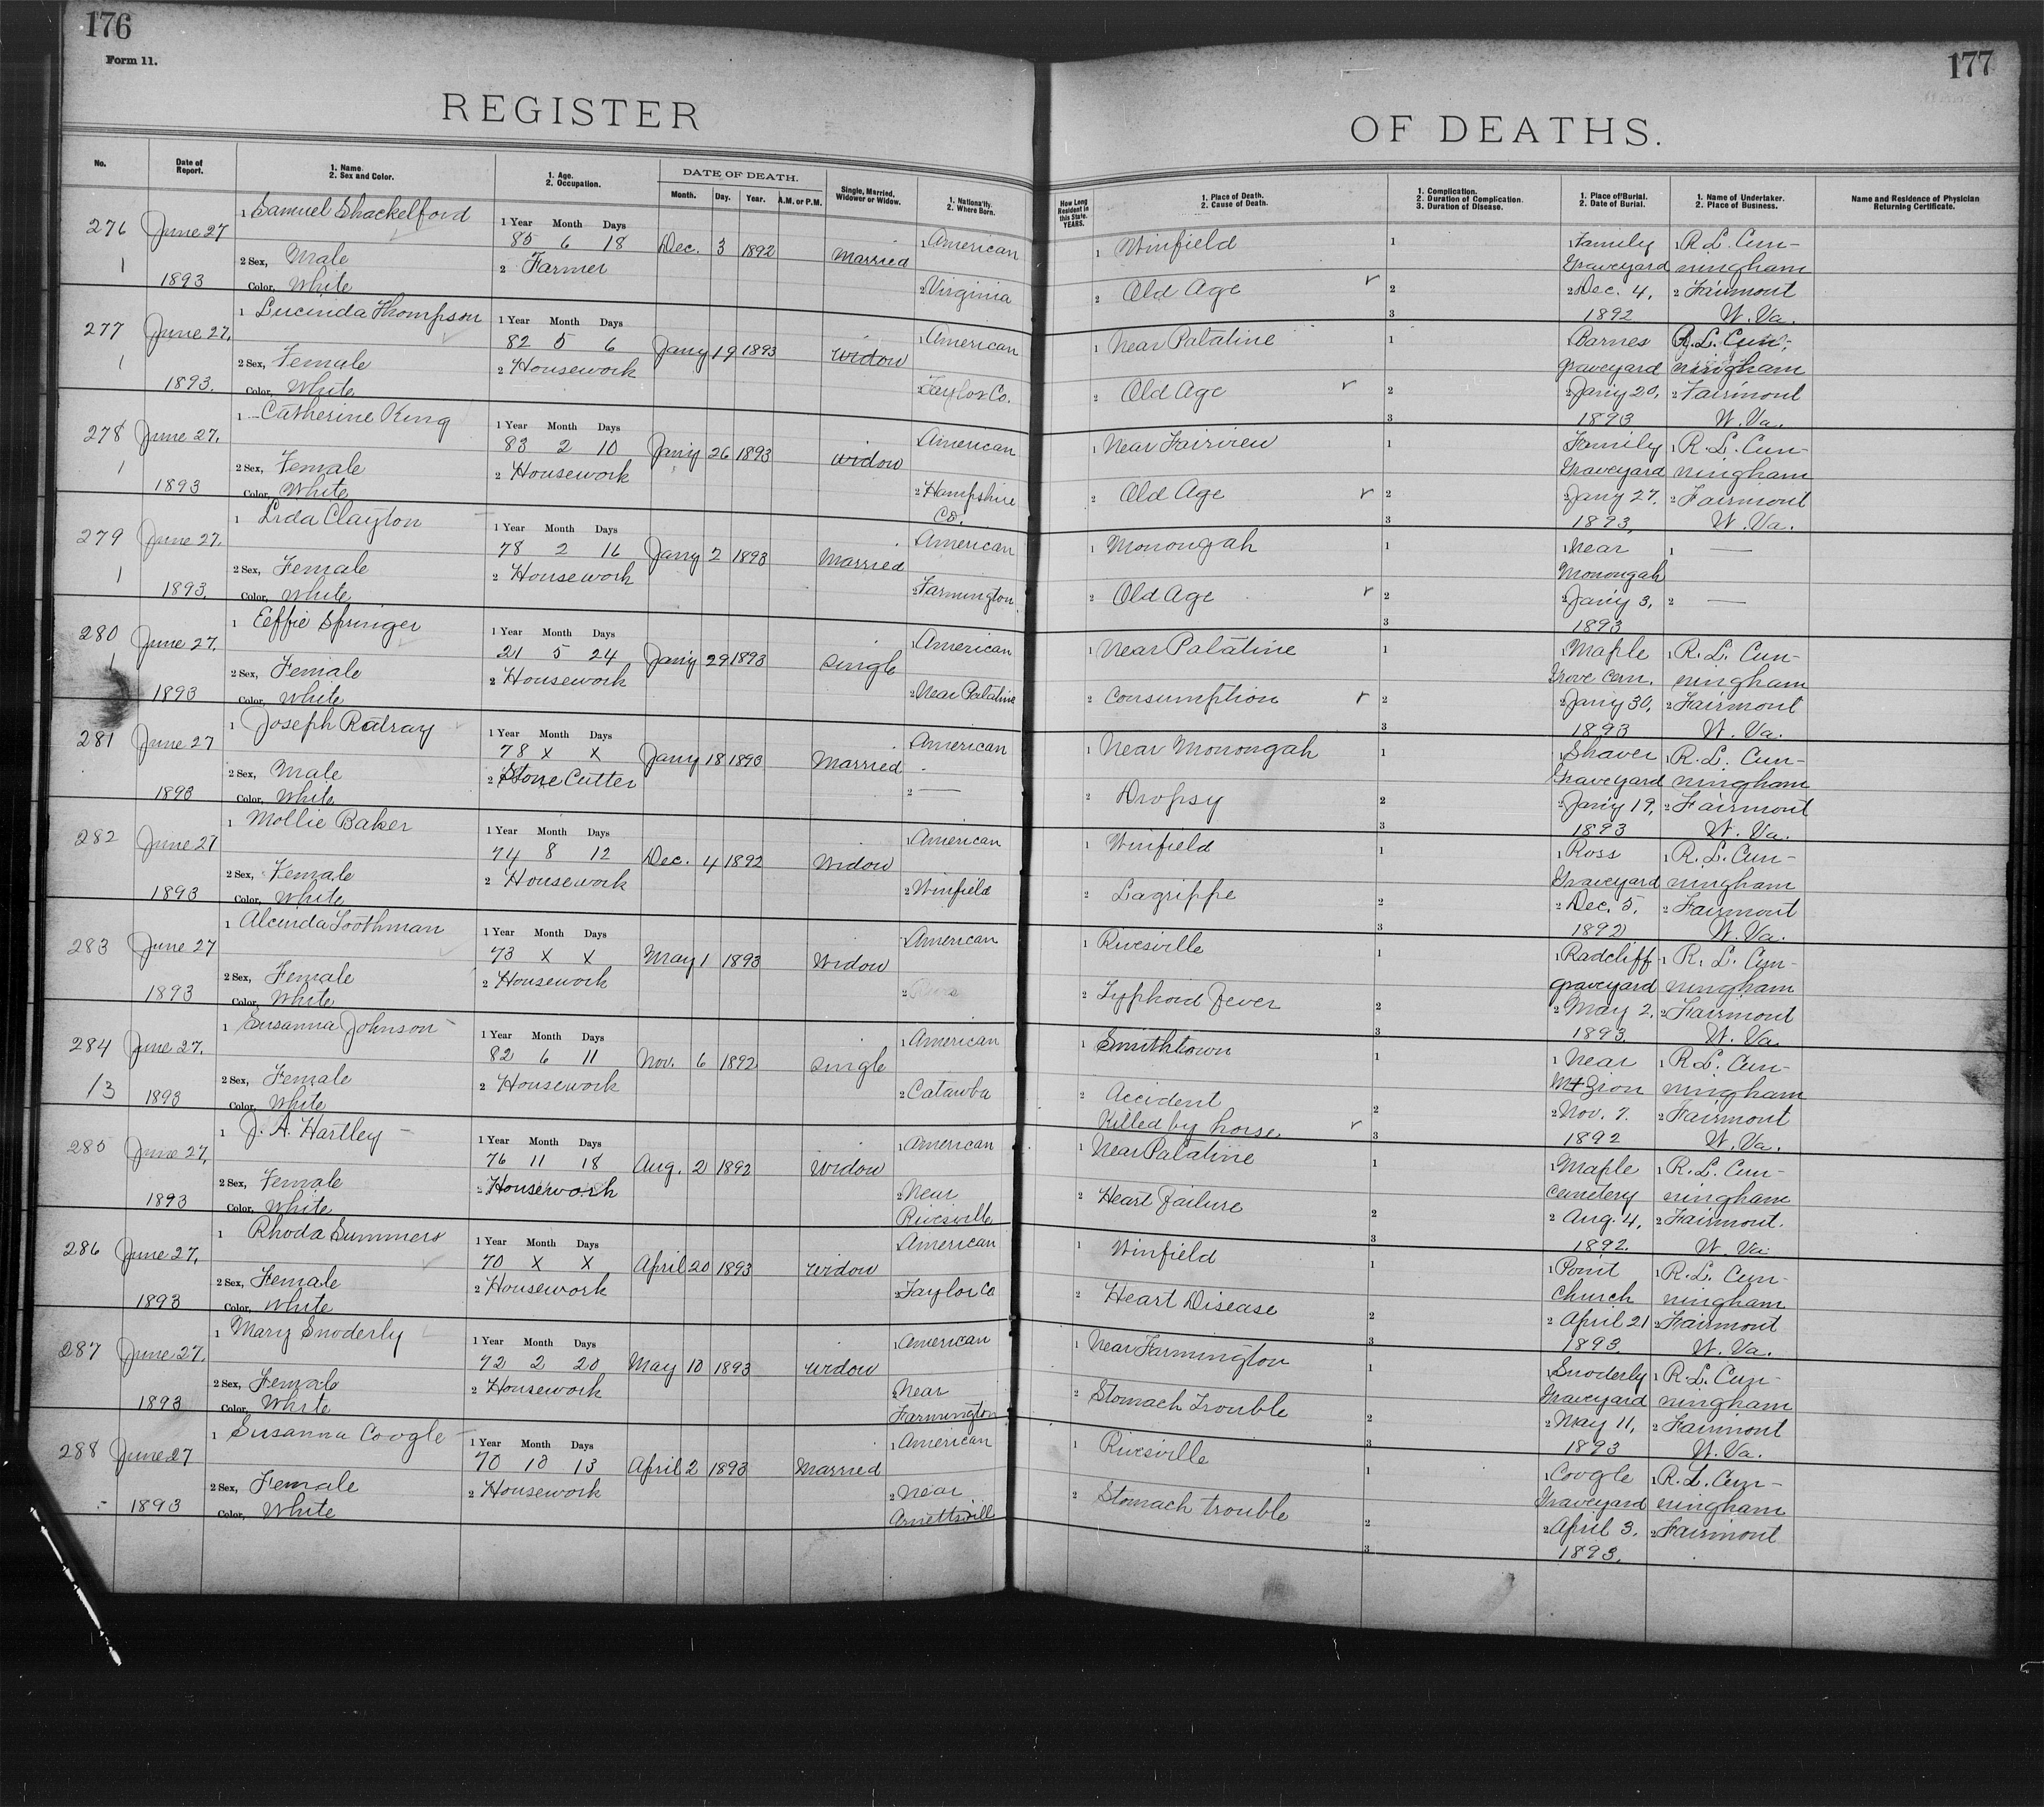 176
177
Form 11.
REGISTER
OF DEATHS.
No.
Date of Report.
1. Name.
2. Sex and Color.
1. Age.
2. Occupation.
DATE OF DEATH.
Month. Day. Year. A.M. or P.M.
Single, Married, Widower or Widow.
1. Nationality.
2. Where Born.
How Long Resident in this State. YEARS.
1. Place of Death.
2. Cause of Death.
1. Complication.
2. Duration of Complication.
3. Duration of Disease.
1. Place of Burial.
2. Date of Burial.
1. Name of Undertaker.
2. Place of Business.
Name and Residence of Physician Returning Certificate.
276 June 27 1 Samuel Shackelford 1 Year Month Days 1 American 1 Winfield 1 1 Family 1 R. L. Cun-
1 2 Sex, Male 85 6 18 Dec. 3 1892 Married Graveyard ningham
1893 Color, White 2 Farmer 2 Virginia 2 Old Age 2 2 Dec. 4, 2 Fairmont
3 1892 W. Va.
277 June 27, 1 Lucinda Thompson 1 Year Month Days 1 American 1 Near Palatine 1 1 Barnes 1 R. L. Cun-
1 2 Sex, Female 82 5 6 Jany 19 1893 Widow graveyard ningham
1893. Color, White 2 Housework 2 Taylor Co. 2 Old Age 2 2 Jany 20, 2 Fairmont
3 1893 W. Va.
278 June 27, 1 Catherine King 1 Year Month Days 1 American 1 Near Fairview 1 1 Family 1 R. L. Cun-
1 2 Sex, Female 83 2 10 Jany 26 1893 Widow Graveyard ningham
1893 Color, White 2 Housework 2 Hampshire Co. 2 Old Age 2 2 Jany 27. 2 Fairmont
3 1893, W. Va.
279 June 27, 1 Lida Clayton 1 Year Month Days 1 American 1 Monongah 1 1 Near 1 —
1 2 Sex, Female 78 2 16 Jany 2 1893 Married Monongah
1893, Color, White 2 Housework 2 Farmington 2 Old Age 2 2 Jany 3, 2 —
3 1893
280 June 27, 1 Eeffie Springer 1 Year Month Days 1 American 1 Near Palatine 1 1 Maple 1 R. L. Cun-
1 2 Sex, Female 21 5 24 Jany 29 1893 Single Grove Cem. ningham
1893 Color, White 2 Housework 2 Near Palatine 2 Consumption 2 2 Jany 30, 2 Fairmont
3 1893 W. Va.
281 June 27 1 Joseph Ratray 1 Year Month Days 1 American 1 Near Monongah 1 1 Shaver 1 R. L. Cun-
2 Sex, Male 78 x x Jany 18 1893 Married Graveyard ningham
1893 Color, White 2 Stone Cutter 2 — 2 Dropsy 2 2 Jany 19, 2 Fairmont
3 1893 W. Va.
282 June 27 1 Mollie Baker 1 Year Month Days 1 American 1 Winfield 1 1 Ross 1 R. L. Cun-
2 Sex, Female 74 8 12 Dec. 4 1892 Widow Graveyard ningham
1893 Color, White 2 Housework 2 Winfield 2 Lagrippe 2 2 Dec. 5, 2 Fairmont
3 1892 W. Va.
283 June 27 1 Alcinda Toothman 1 Year Month Days 1 American 1 Rivesville 1 1 Radcliff 1 R. L. Cun-
2 Sex, Female 73 x x May 1 1893 Widow graveyard ningham
1893 Color, White 2 Housework 2 2 Typhoid Fever 2 2 May 2, 2 Fairmont
3 1893 W. Va.
284 June 27, 1 Susanna Johnson 1 Year Month Days 1 American 1 Smithtown 1 1 Near 1 R. L. Cun-
13 2 Sex, Female 82 6 11 Nov. 6 1892 Single Mt Zion ningham
1893 Color, White 2 Housework 2 Catawba 2 Accident 2 2 Nov. 7. 2 Fairmont
Killed by horse 3 1892 W. Va.
285 June 27, 1 J. A. Hartley 1 Year Month Days 1 American 1 Near Palatine 1 1 Maple 1 R. L. Cun-
2 Sex, Female 76 11 18 Aug. 2 1892 Widow Cemetery ningham
1893 Color, White 2 Housework 2 Near Rivesville 2 Heart Failure 2 2 Aug. 4, 2 Fairmont.
3 1892. W. Va.
286 June 27, 1 Rhoda Summers 1 Year Month Days American 1 Winfield 1 1 Point 1 R. L. Cun-
2 Sex, Female 70 x x April 20 1893 Widow Church ningham
1893 Color, White 2 Housework 2 Taylor Co 2 Heart Disease 2 2 April 21 2 Fairmont
3 1893. W. Va.
287 June 27, 1 Mary Snoderly 1 Year Month Days 1 American 1 Near Farmington 1 1 Snoderly 1 R. L. Cun-
2 Sex, Female 72 2 20 May 10 1893 Widow Graveyard ningham
1893 Color, White 2 Housework 2 Near Farmington 2 Stomach Trouble 2 2 May 11, 2 Fairmont
3 1893 W. Va.
288 June 27 1 Susanna Coogle 1 Year Month Days 1 American 1 Rivesville 1 1 Coogle 1 R. L. Cun-
2 Sex, Female 70 10 13 April 2 1893 Married Graveyard ningham
1893 Color, White 2 Housework 2 Near Arnettsvill 2 Stomach trouble 2 2 April 3. 2 Fairmont
3 1893.